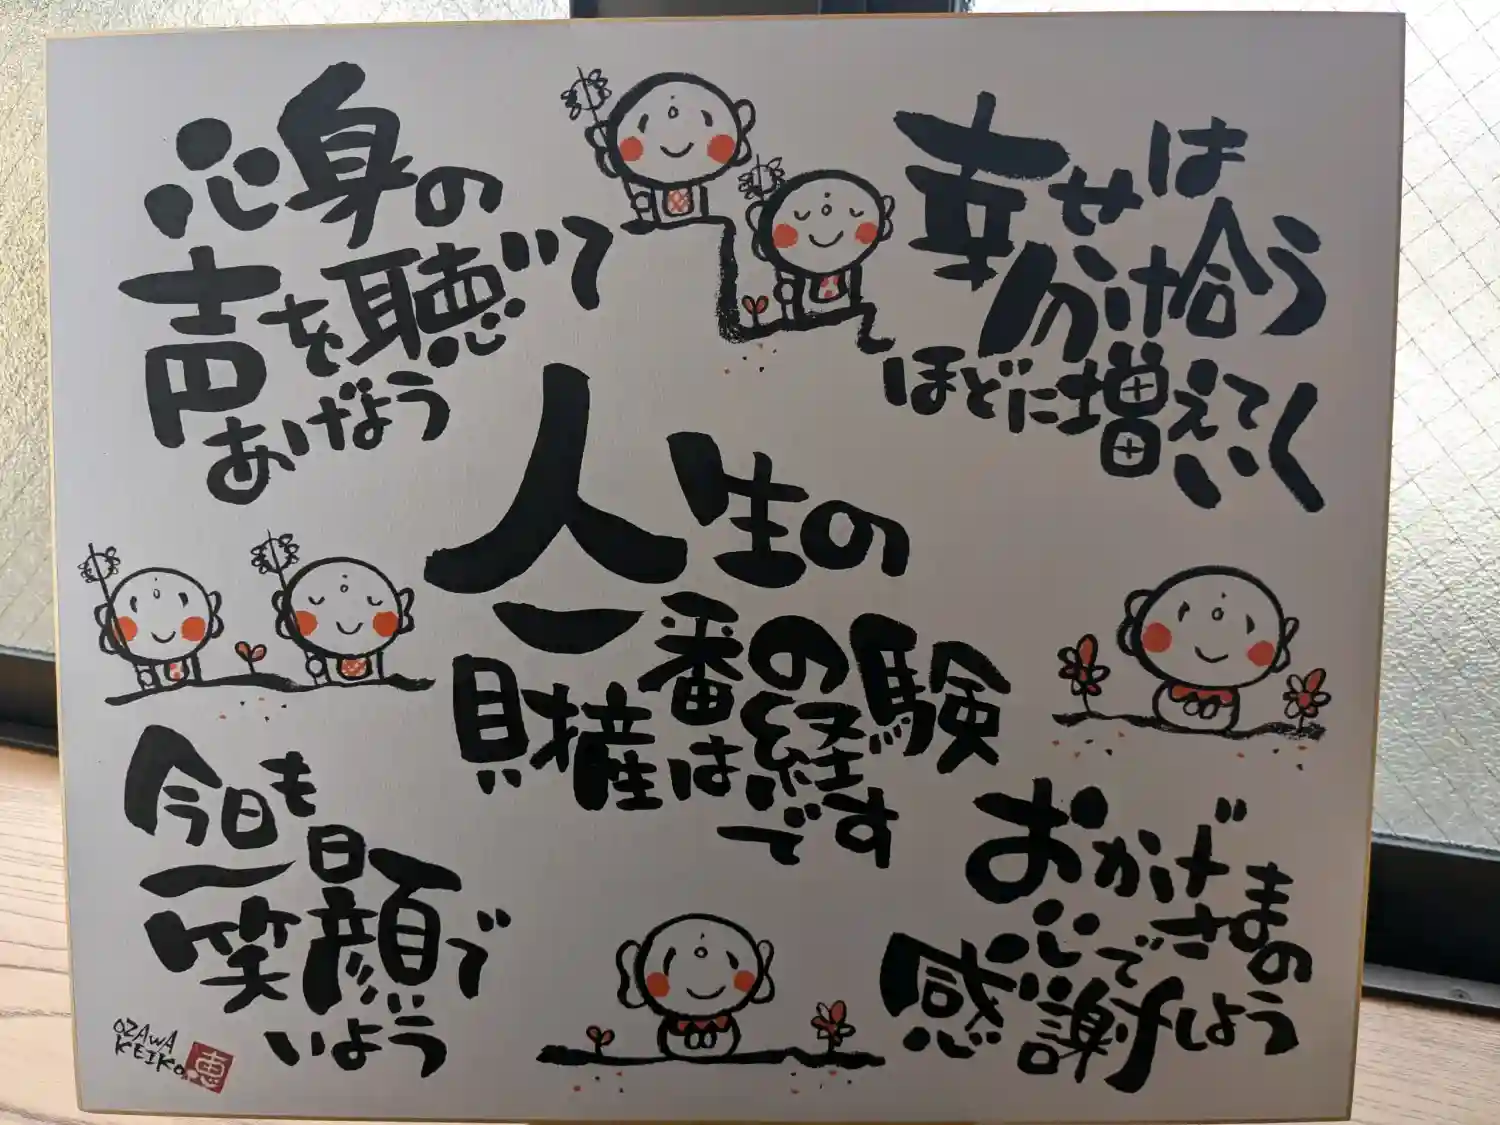 心身の
声を聴いて
あげよう
幸せは
分け拾う
ほどに増えていく
人生の
一番の
財産は経験
です
今日も
一日
笑顔で
いよう
おかげさまの
心で
感謝しよう
OZAWA
KEIKO
恵